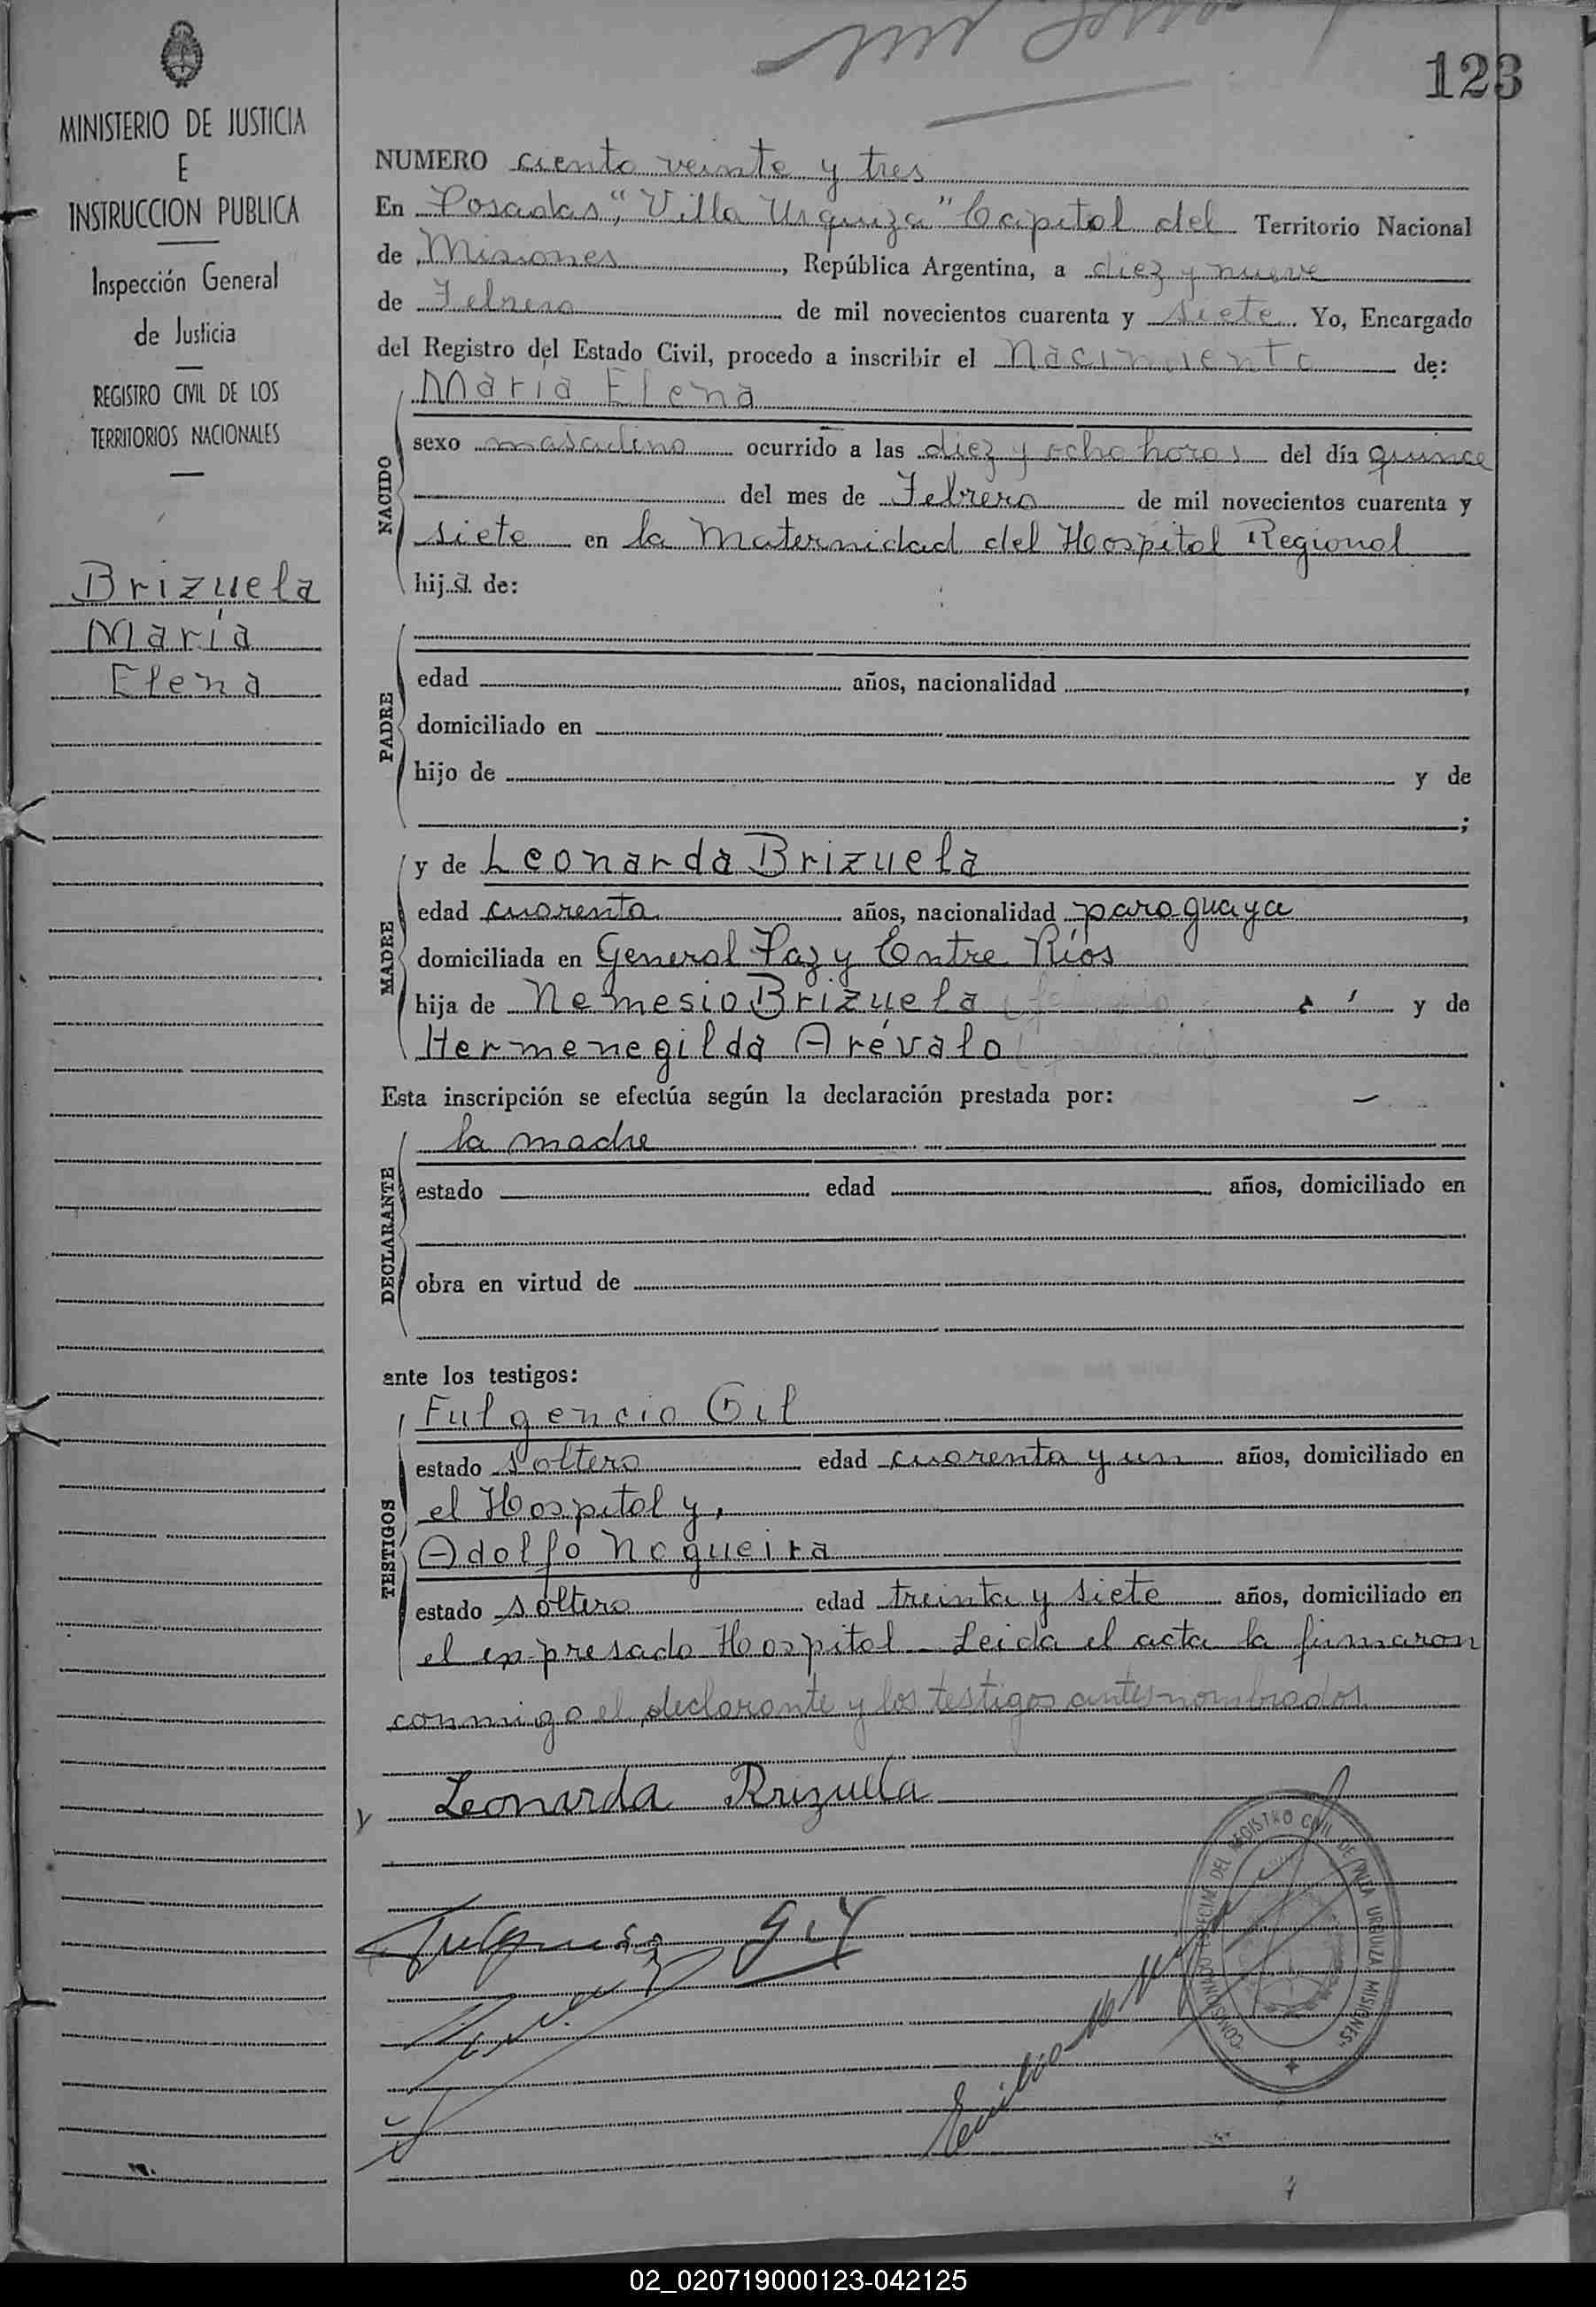 123
MINISTERIO DE JUSTICIA
E
INSTRUCCION PUBLICA
Inspección General
de Justicia
REGISTRO CIVIL DE LOS
TERRITORIOS NACIONALES
Brizuela
María
Elena
NUMERO ciento veinte y tres
En Posadas, "Villa Urquiza" Capital del Territorio Nacional
de Misiones, República Argentina, a diez y nueve
de Febrero de mil novecientos cuarenta y siete. Yo, Encargado
del Registro del Estado Civil, procedo a inscribir el Nacimiento de:
NACIDO
María Elena
sexo masculino ocurrido a las diez y ocho horas del día quince
del mes de Febrero de mil novecientos cuarenta y
siete en la Maternidad del Hospital Regional
hija de:
PADRE
edad años, nacionalidad ,
domiciliado en
hijo de y de
;
MADRE
y de Leonarda Brizuela
edad cuarenta años, nacionalidad paraguaya,
domiciliada en General Paz y Entre Ríos
hija de Nemesio Brizuela y de
Hermenegilda Arévalo
Esta inscripción se efectúa según la declaración prestada por:
DECLARANTE
la madre
estado edad años, domiciliado en
obra en virtud de
ante los testigos:
TESTIGOS
Fulgencio Gil
estado soltero edad cuarenta y un años, domiciliado en
el Hospital y,
Adolfo Nogueira
estado soltero edad treinta y siete años, domiciliado en
el expresado Hospital - Leida el acta la firmaron
conmigo el declarante y los testigos antes nombrados
Leonarda Brizuela
Fulgencio Gil
Emilio
COMISION ESPECIAL DEL REGISTRO CIVIL DE VILLA URQUIZA MISIONES
02_020719000123-042125